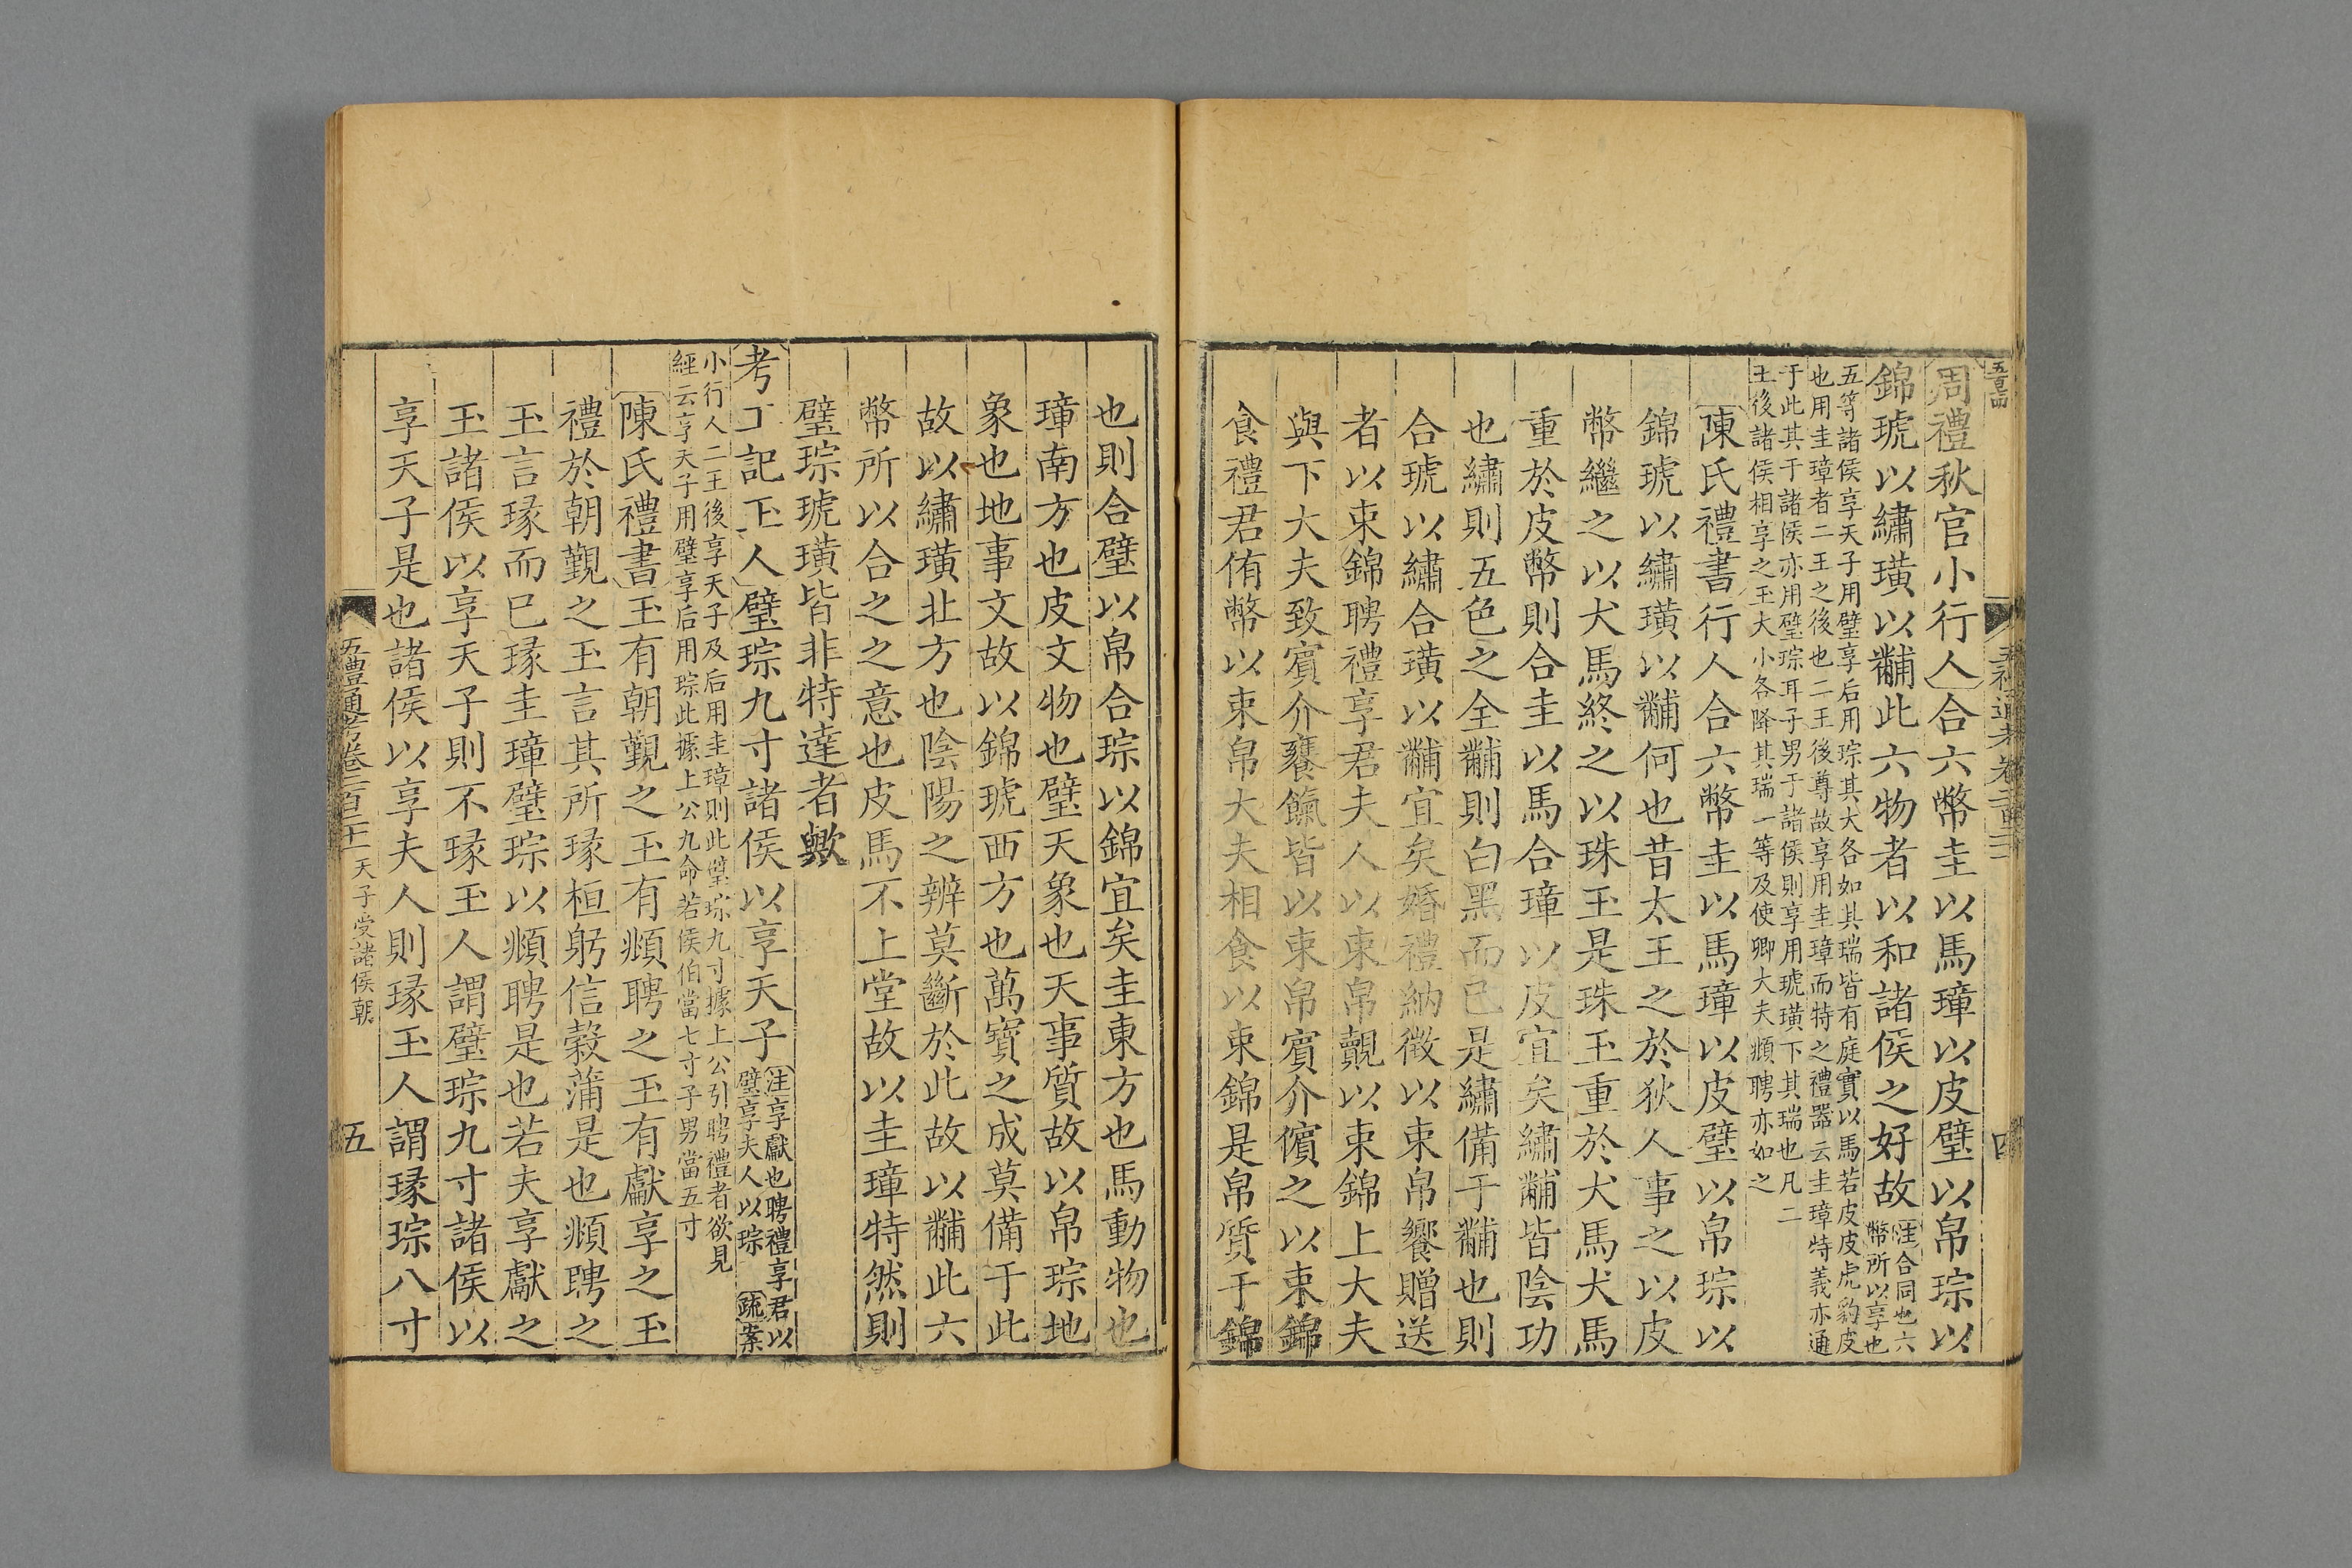 周禮秋官小行人合六幣圭以馬璋以皮璧以帛琮以
錦琥以繡璜以黼此六物者以和諸侯之好故注合同也六
幣所以享也
五等諸侯享天子用璧享后用琮其大各如其瑞皆有庭實以馬若皮皮虎豹皮
也用圭璋者二王之後也二王後尊故享用圭璋而特之禮器云圭璋特義亦通
于此其于諸侯亦用璧琮耳子男于諸侯則享用琥璜下其瑞也凡二
王後諸侯相享之玉大小各降其瑞一等及使卿大夫頫聘亦如之
陳氏禮書行人合六幣圭以馬璋以皮璧以帛琮以
錦琥以繡璜以黼何也昔太王之於狄人事之以皮
幣繼之以犬馬終之以珠玉是珠玉重於犬馬犬馬
重於皮幣則合圭以馬合璋以皮宜矣繡黼皆陰功
也繡則五色之全黼則白黑而已是繡備于黼也則
合琥以繡合璜以黼宜矣婚禮納徵以束帛饗贈送
者以束錦聘禮享君夫人以束帛覿以束錦上大夫
與下大夫致賓介饔餼皆以束帛賓介儐之以束錦
食禮君侑幣以束帛大夫相食以束錦是帛質于錦
四
也則合璧以帛合琮以錦宜矣圭東方也馬動物也
璋南方也皮文物也璧天象也天事質故以帛琮地
象也地事文故以錦琥西方也萬寶之成莫備于此
故以繡璜北方也陰陽之辨莫斷於此故以黼此六
幣所以合之之意也皮馬不上堂故以圭璋特然則
璧琮琥璜皆非特達者歟
考工記玉人璧琮九寸諸侯以享天子注享獻也聘禮享君以
璧享夫人以琮 疏案
小行人二王後享天子及后用圭璋則此璧琮九寸據上公引聘禮者欲見
經云享天子用璧享后用琮此據上公九命若侯伯當七寸子男當五寸
陳氏禮書玉有朝覲之玉有頫聘之玉有獻享之玉
禮於朝覲之玉言其所瑑桓躬信穀蒲是也頫聘之
玉言瑑而已瑑圭璋璧琮以頫聘是也若夫享獻之
玉諸侯以享天子則不瑑玉人謂璧琮九寸諸侯以
享天子是也諸侯以享夫人則瑑玉人謂瑑琮八寸
五禮通考卷二百二十一 天子受諸侯朝 五